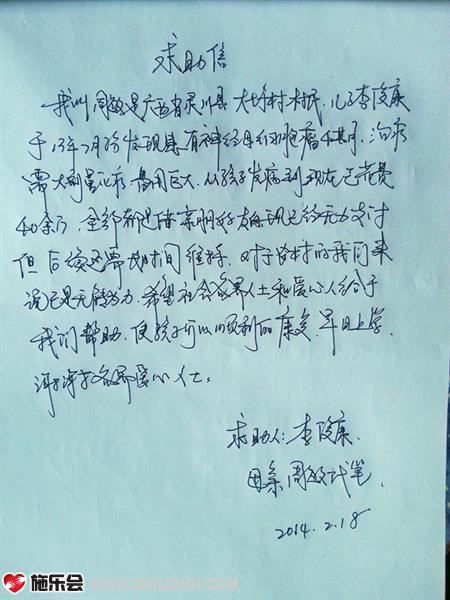 求助信
我叫周敏是广西省灵川县大圩村村民,儿子李俊康
于13年7月份发现患有神经母细胞瘤4期.治疗
需大剂量化疗.费用巨大.从孩子发病到现在已花费
40余万,全部都是借亲朋好友的现已经无力支付
但后续还需长时间维持.对于农村的我们来
说已是无能为力.希望社会各界人士和爱心人给于
我们帮助.使孩子可以顺利的康复.早日上学.
谢谢各界爱心人士.
求助人:李俊康.
母亲周敏代笔.
2014.2.18
施乐会
WWW.SHILEHUI.COM